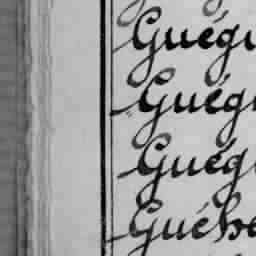 Guég
Guég
Guég
Guéhe